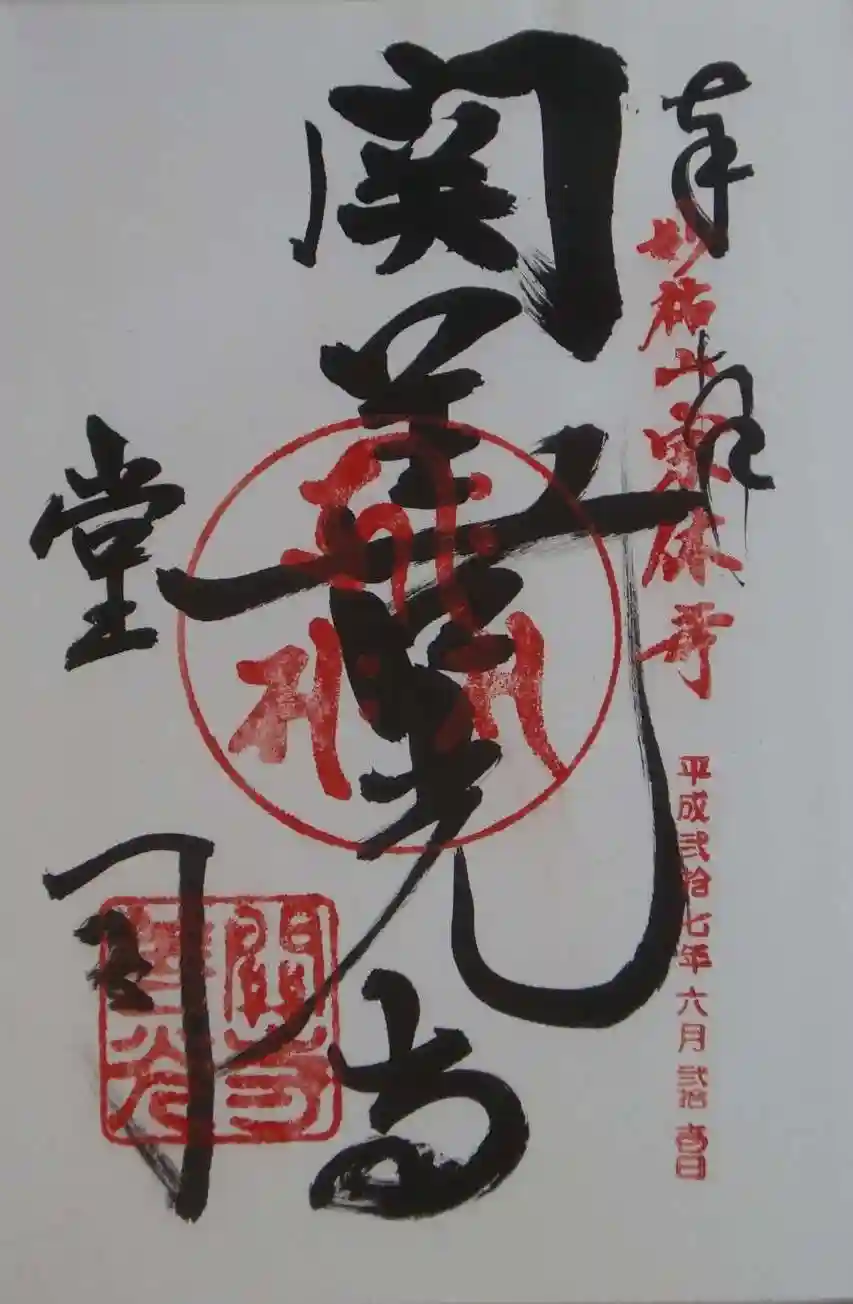 奉拝
妙祐山宗休寺
平成弐拾七年六月弐拾壱日
関善光寺
堂司